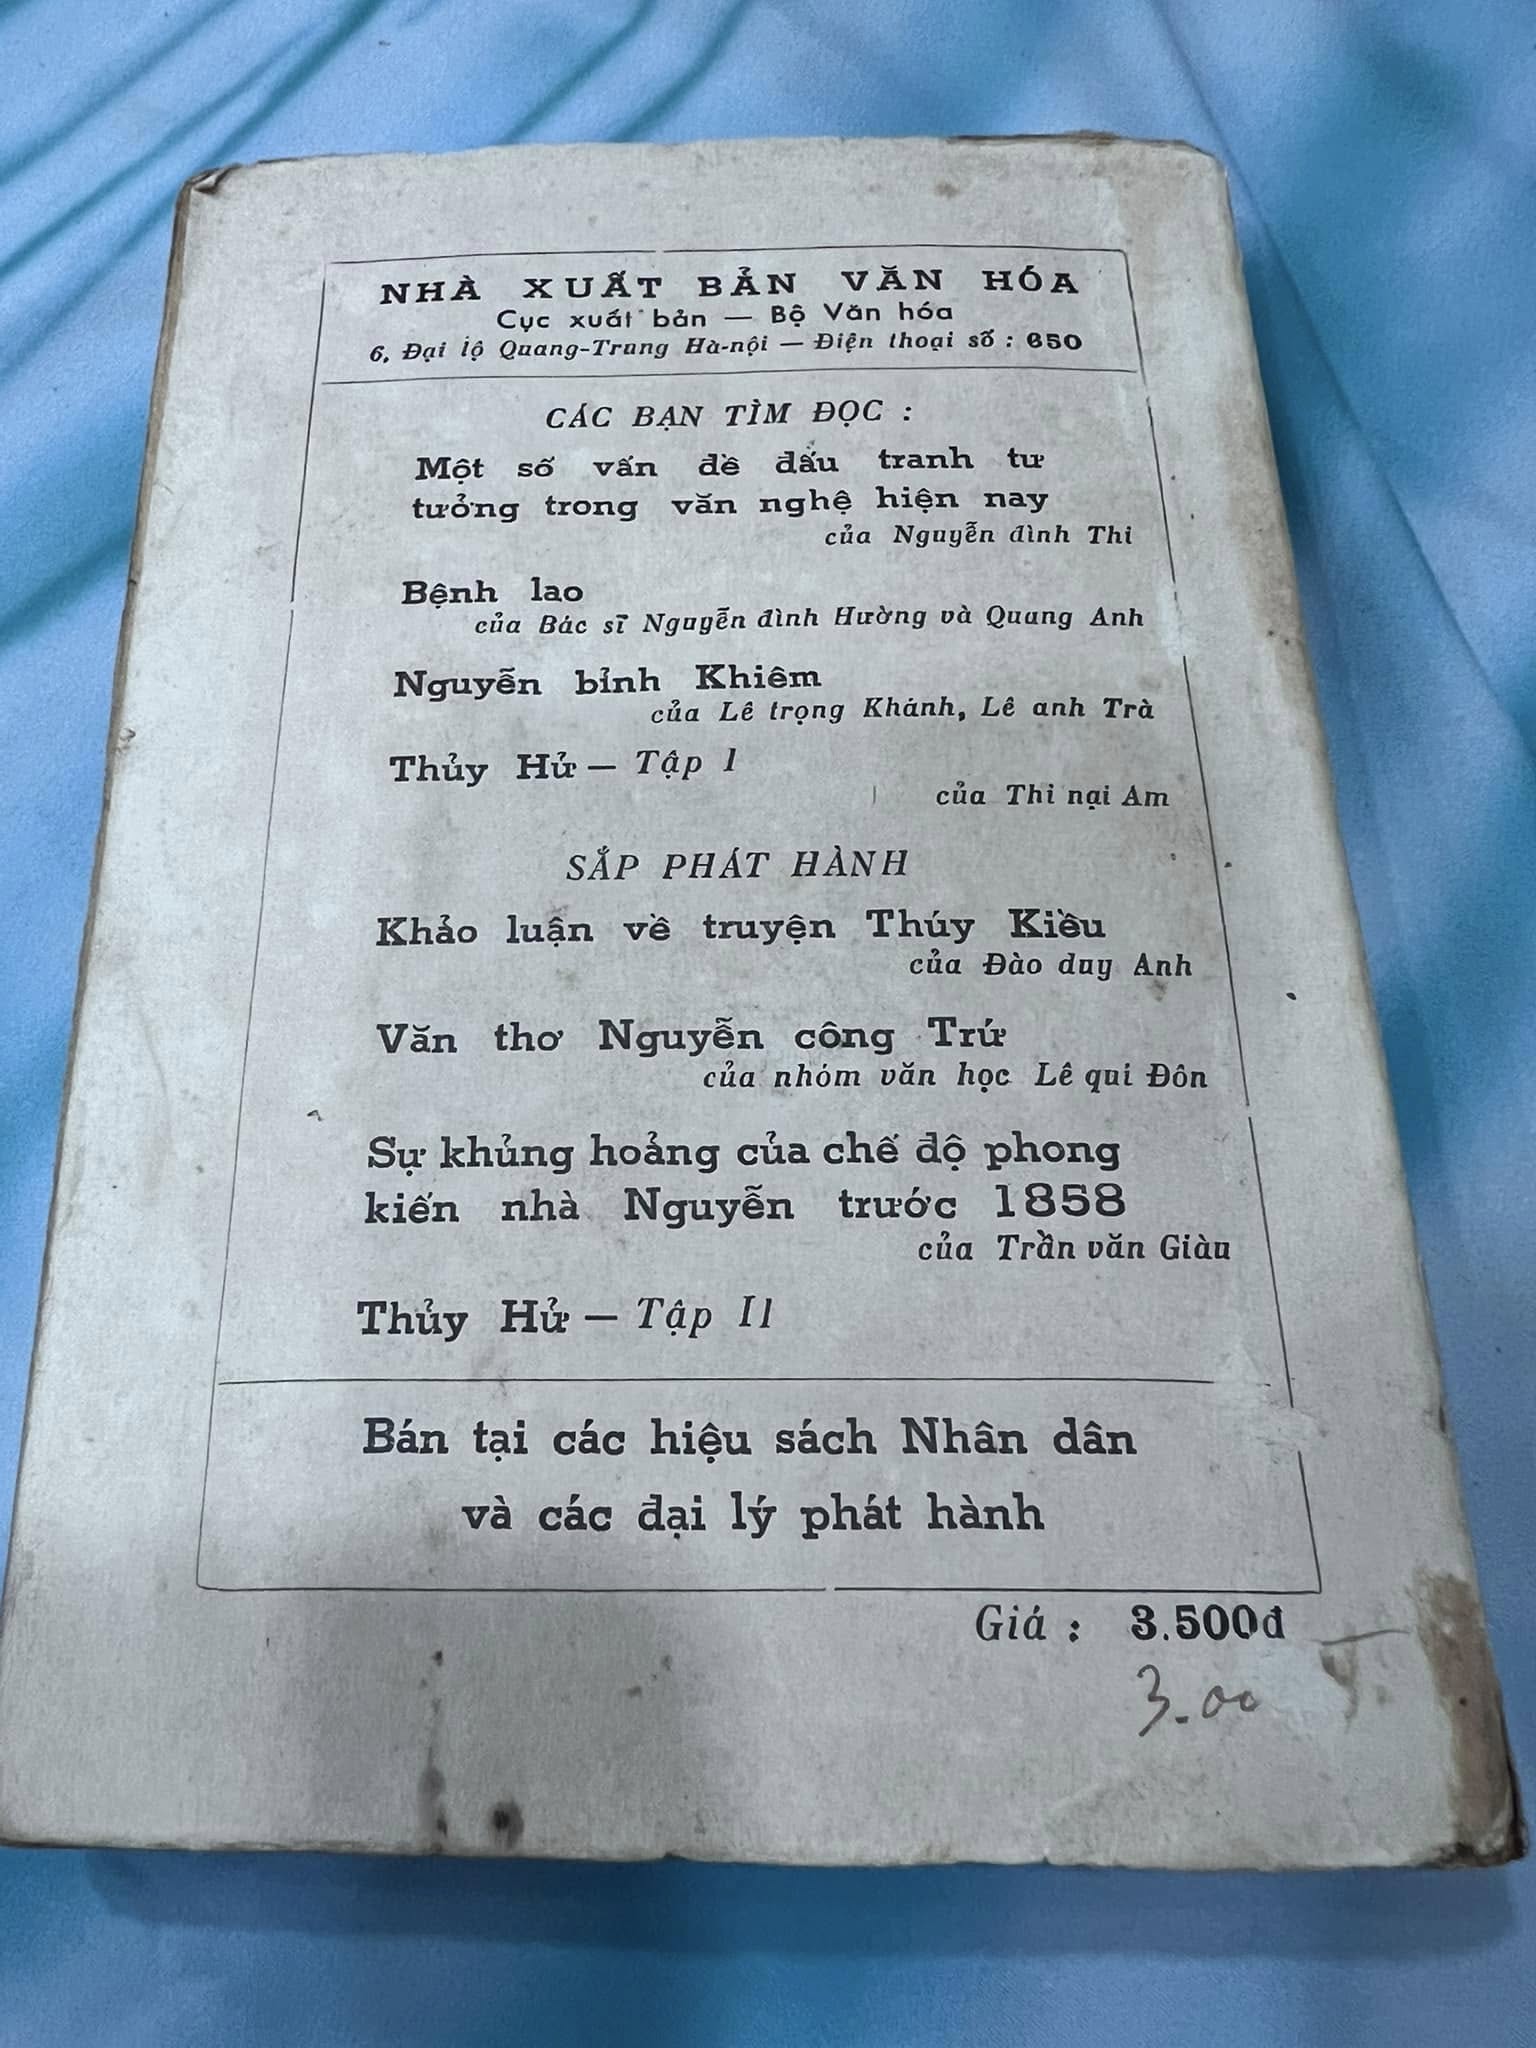 NHÀ XUẤT BẢN VĂN HÓA
Cục xuất bản — Bộ Văn hóa
6, Đại lộ Quang-Trung Hà-nội — Điện thoại số : 650
CÁC BẠN TÌM ĐỌC :
Một số vấn đề đấu tranh tư
tưởng trong văn nghệ hiện nay
của Nguyễn đình Thi
Bệnh lao
của Bác sĩ Nguyễn đình Hường và Quang Anh
Nguyễn bỉnh Khiêm
của Lê trọng Khánh, Lê anh Trà
Thủy Hử — Tập I
của Thi nại Am
SẮP PHÁT HÀNH
Khảo luận về truyện Thúy Kiều
của Đào duy Anh
Văn thơ Nguyễn công Trứ
của nhóm văn học Lê quí Đôn
Sự khủng hoảng của chế độ phong
kiến nhà Nguyễn trước 1858
của Trần văn Giàu
Thủy Hử — Tập II
Bán tại các hiệu sách Nhân dân
và các đại lý phát hành
Giá : 3.500đ
3.00